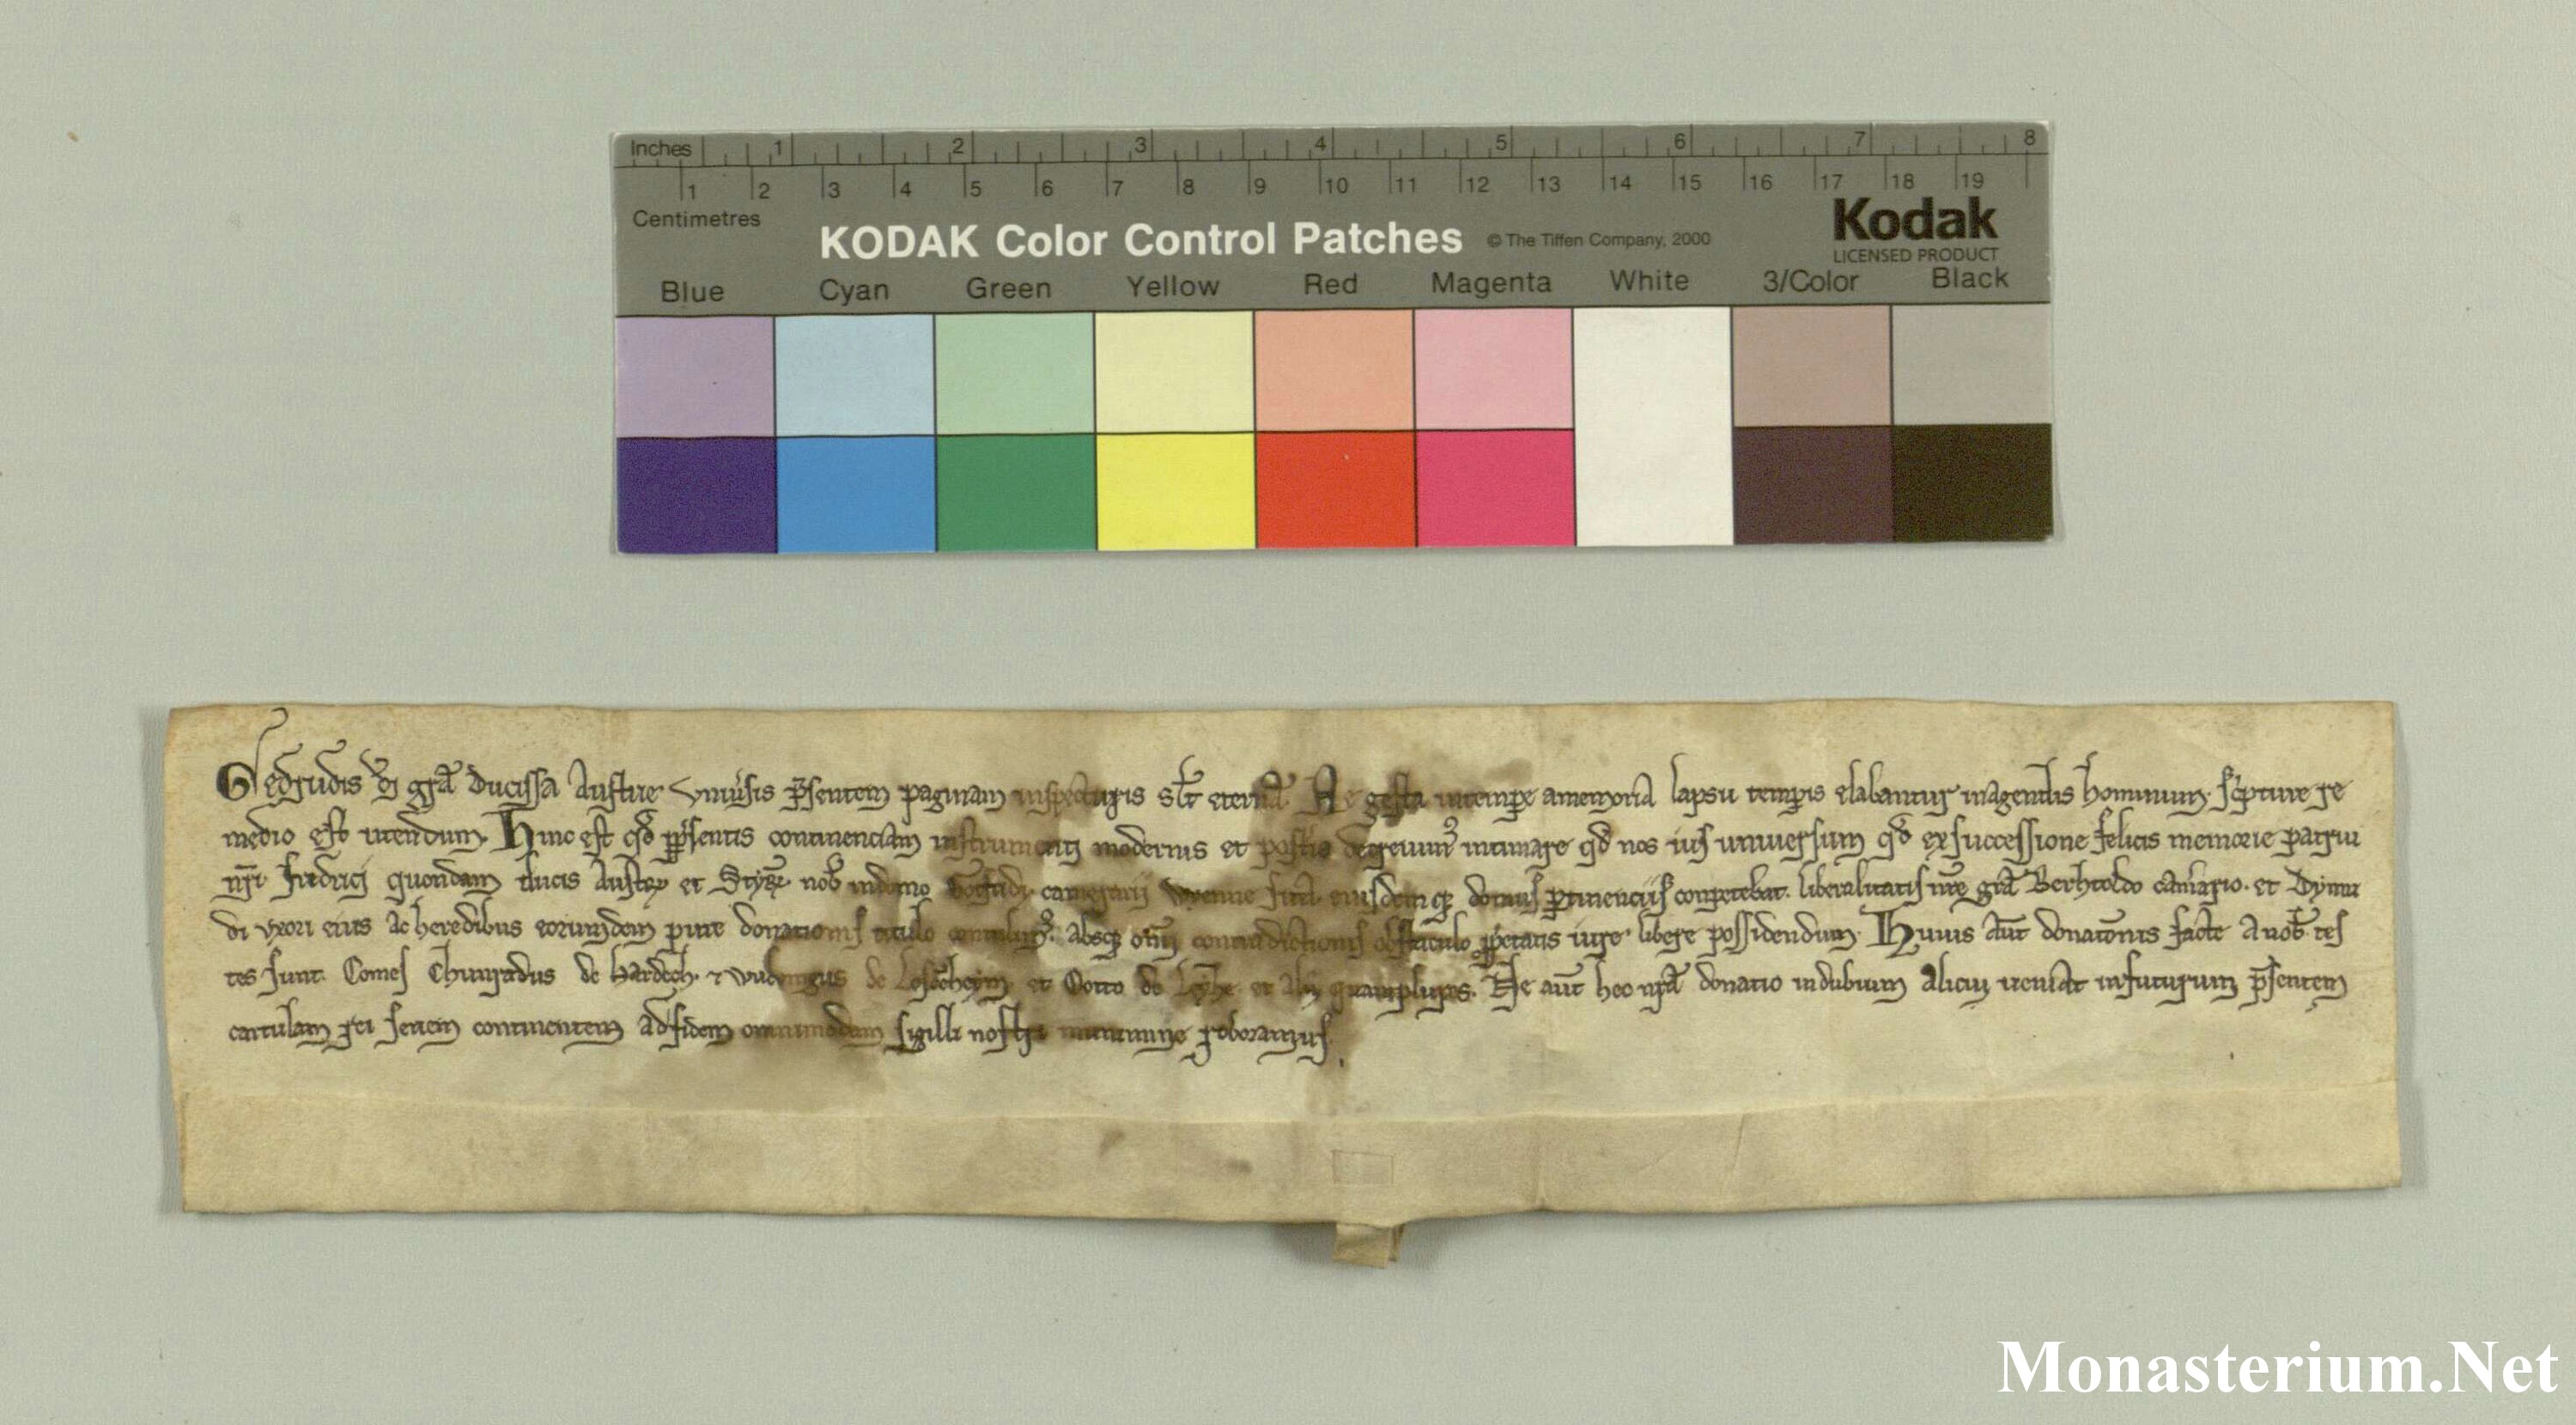 Inches 1 2 3 4 5 6 7 8
1 2 3 4 5 6 7 8 9 10 11 12 13 14 15 16 17 18 19
Centimetres
KODAK Color Control Patches © The Tiffen Company, 2000 Kodak
LICENSED PRODUCT
Blue Cyan Green Yellow Red Magenta White 3/Color Black
Gedrudis di gra Ducissa Austrie Universis psentem paginam inspecturis slt eterna. Ne gesta in tempore a memoria lapsu temporis elabantur in agentibus hominum. scripture re
medio est utendum. Hinc est qd psentis continenciam instrumenti modernis et posteris decrevimus intimare qd nos ius universum qd ex successione felicis memorie patrui
nri fridrici quondam ducis Austrie et Styrie nob in domo camerarii Wienne sita eiusdemque domus ptinenciis conpetebat. liberalitatis nre gra Berhtoldo camario. et Dymu
di uxori eius ac heredibus eorundem pure donationis titulo contulimus. absque omni contradictionis obstaculo prpetatis iure libere possidendum. Huius aut donatonis facte a nob tes
tes sunt. Comes Chunradus de Hardech. et de et Otto de et alii quamplures. Ne aut hec nra donatio in dubium alicui veniat in futurum psentem
cartulam rei seriem continentem ad fidem omnimodam sigilli nostri munimine roboramus.
Monasterium.Net